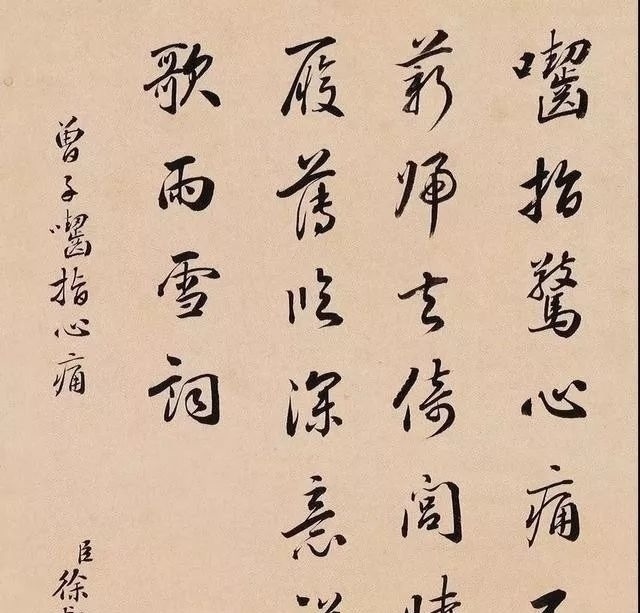 囓指驚心痛
薪歸去倚閭
履薄臨深意
歌雨雪詞
曾子囓指心痛
臣徐